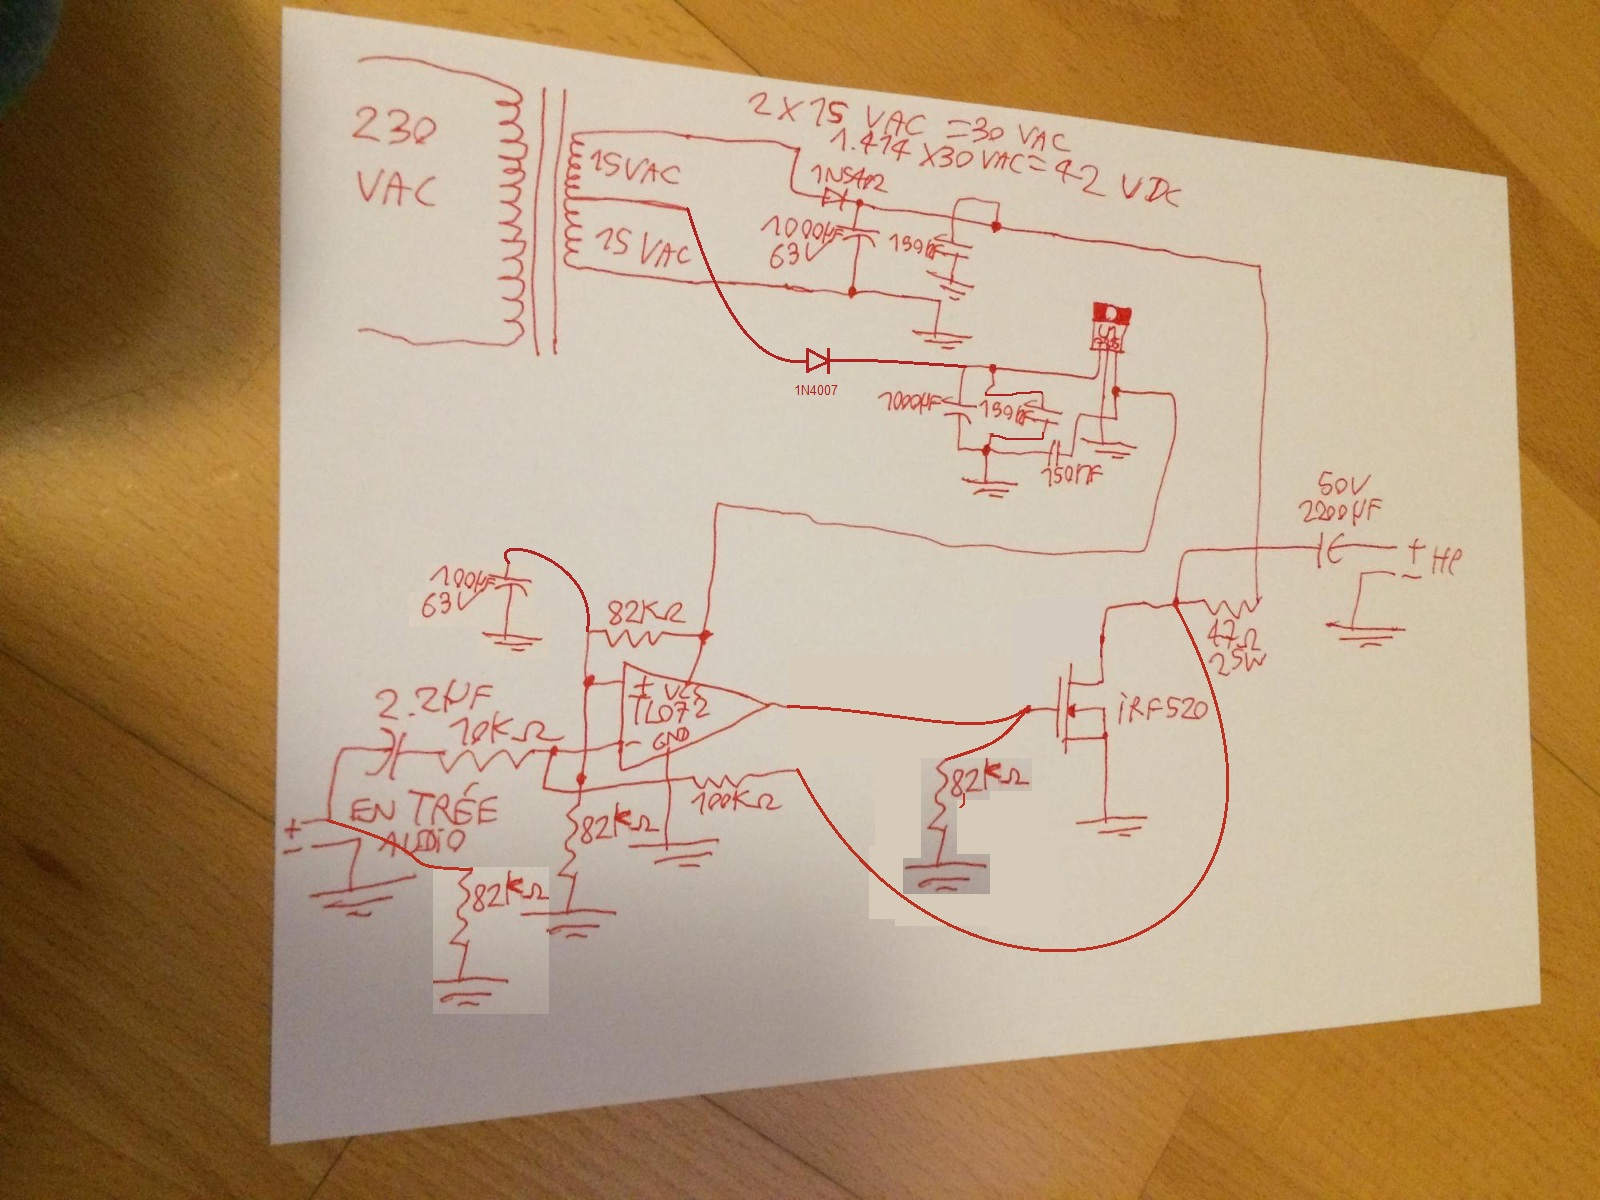 230
VAC
15VAC
15 VAC
2 X 15 VAC = 30 VAC
1.414 X30 VAC = 42 VDC
1N5402
1000µF
63V
1N4007
1000µF
150nF
50V
2200µF
+ HP
-
47Ω
25W
100µF
63V
82KΩ
+ VCC
TL072
- GND
iRF520
2.2µF
10KΩ
100KΩ
82KΩ
82KΩ
+ ENTRÉE
- AUDiO
82KΩ